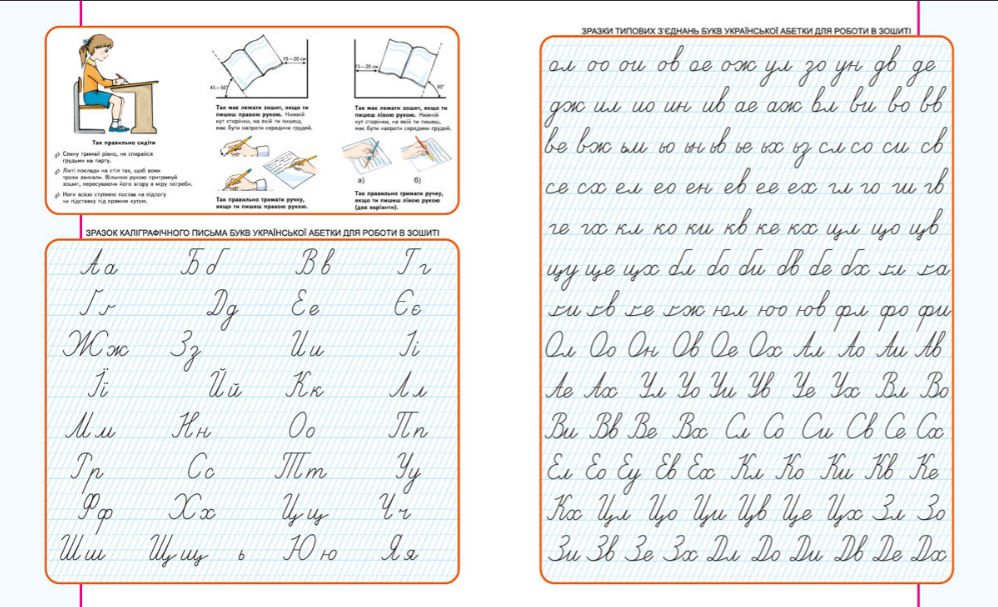 15—20 см
45—50°
Так має лежати зошит, якщо ти
пишеш правою рукою. Нижній
кут сторінки, на якій ти пишеш,
має бути напроти середини грудей.
15—20 см
60°
Так має лежати зошит, якщо ти
пишеш лівою рукою. Нижній
кут сторінки, на якій ти пишеш,
має бути напроти середини грудей.
Так правильно сидіти
Спину тримай рівно, не спирайся
грудьми на парту.
Лікті поклади на стіл так, щоб вони
трохи звисали. Вільною рукою притримуй
зошит, пересуваючи його вгору в міру потреби.
Ноги всією ступнею постав на підлогу
чи підставку під прямим кутом.
Так правильно тримати ручку,
якщо ти пишеш правою рукою.
а) б)
Так правильно тримати ручку,
якщо ти пишеш лівою рукою
(два варіанти).
ЗРАЗОК КАЛІГРАФІЧНОГО ПИСЬМА БУКВ УКРАЇНСЬКОЇ АБЕТКИ ДЛЯ РОБОТИ В ЗОШИТІ
Аа Бб Вв Гг
Ґґ Дд Ее Єє
Жж Зз Ии Іі
Її Йй Кк Лл
Мм Нн Оо Пп
Рр Сс Тт Уу
Фф Хх Цц Чч
Шш Щщ ь Юю Яя
ЗРАЗКИ ТИПОВИХ З'ЄДНАНЬ БУКВ УКРАЇНСЬКОЇ АБЕТКИ ДЛЯ РОБОТИ В ЗОШИТІ
ол оо ои ов ое ож ул зо ун дв де
дж ил ио ин ив ае аж вл ви во вв
ве вж ьл ьо ьн ьв ье ьх ьз сл со си св
се сх ел ео ен ев ее ех гл го ги гв
ге гх кл ко ки кв ке кх цл цо цв
цу це цх бл бо би бв бе бх ґл ґа
ґи ґв ґе ґж юл юо юв фл фо фи
Ол Оо Он Ов Ое Ох Ал Ао Аи Ав
Ае Ах Ул Уо Уи Ув Уе Ух Вл Во
Ви Вв Ве Вх Сл Со Си Св Се Сх
Ел Ео Еу Ев Ех Кл Ко Ки Кв Ке
Кх Цл Цо Ци Цв Це Цх Зл Зо
Зи Зв Зе Зх Дл До Ди Дв Де Дх